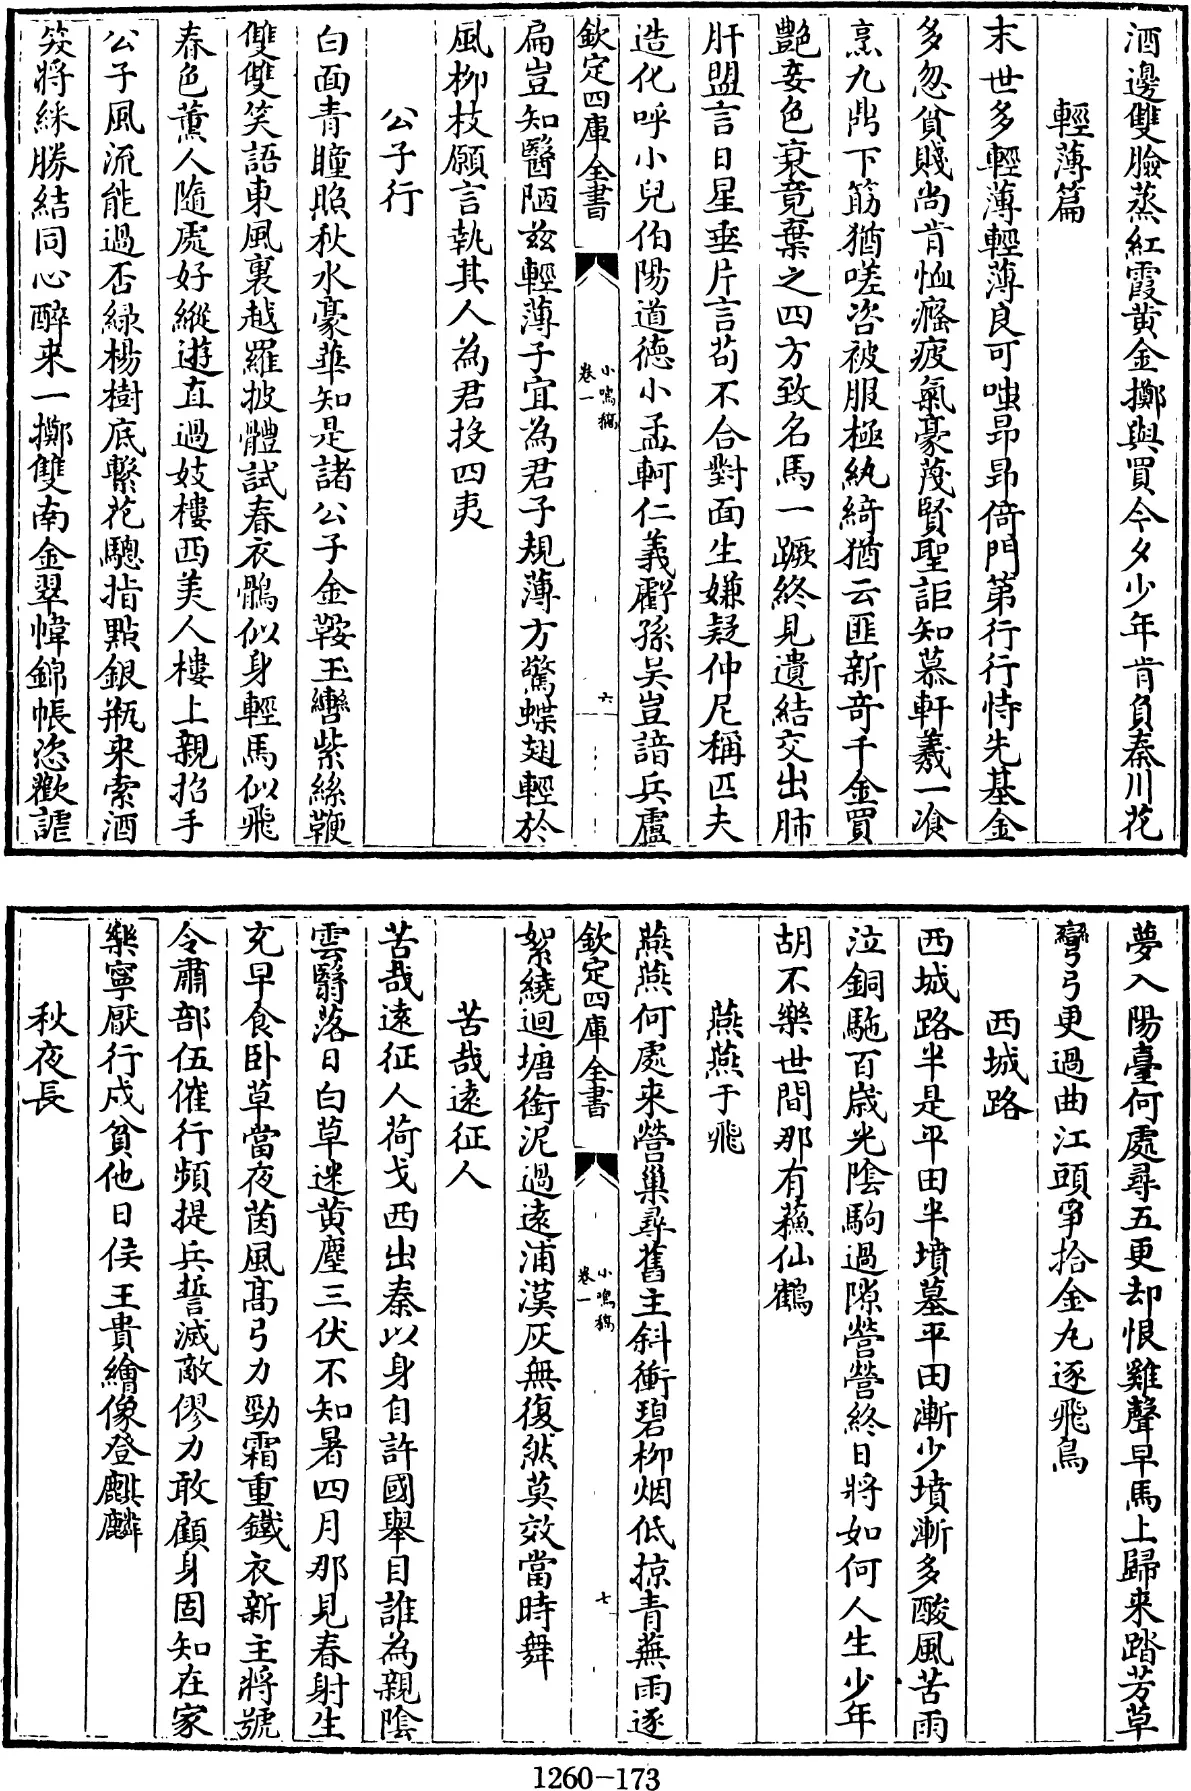 酒邊雙臉蒸紅霞黄金擲與買今夕少年肯負秦川花
輕薄篇
末世多輕薄輕薄良可嗤昻昻倚門第行行恃先基金
多忽貧賤尚肯恤癃疲氣豪蔑賢聖詎知慕軒羲一飡
烹九鼎下筯猶嗟咨被服極紈綺猶云匪新奇千金買
艷妾色衰竟棄之四方致名馬一蹶終見遺結交出肺
肝盟言日星垂片言苟不合對面生嫌疑仲尼稱匹夫
造化呼小兒伯陽道德小孟軻仁義虧孫吳豈諳兵盧
欽定四庫全書
小鳴稿
卷一
六
扁豈知醫陋兹輕薄子宜為君子規薄方驚蝶翅輕於
風柳枝願言執其人為君投四夷
公子行
白面青瞳照秋水豪華知是諸公子金鞍玉轡紫絲鞭
雙雙笑語東風裏越羅披體試春衣鶻似身輕馬似飛
春色薰人隨處好縱遊直過妓樓西美人樓上親招手
公子風流能過否緑楊樹底繫花驄指點銀瓶來索酒
笑將綵勝結同心醉來一擲雙南金翠幃錦帳恣歡謔
夢入陽臺何處尋五更却恨雞聲早馬上歸來踏芳草
彎弓更過曲江頭爭拾金丸逐飛鳥
西城路
西城路半是平田半墳墓平田漸少墳漸多酸風苦雨
泣銅駞百歳光陰駒過隙營營終日將如何人生少年
胡不樂世間那有蘓仙鶴
燕燕于飛
燕燕何處來營巢尋舊主斜衝碧柳烟低掠青蕪雨逐
欽定四庫全書
小鳴稿
卷一
七
絮繞迴塘銜泥過遠浦漢灰無復然莫效當時舞
苦哉遠征人
苦哉遠征人荷戈西出秦以身自許國舉目誰為親陰
雲翳落日白草迷黄塵三伏不知暑四月那見春射生
充早食卧草當夜茵風髙弓力勁霜重鐵衣新主將號
令肅部伍催行頻提兵誓滅敵僇力敢顧身固知在家
樂寧厭行戍貧他日侯王貴繪像登麒麟
秋夜長
1260-173